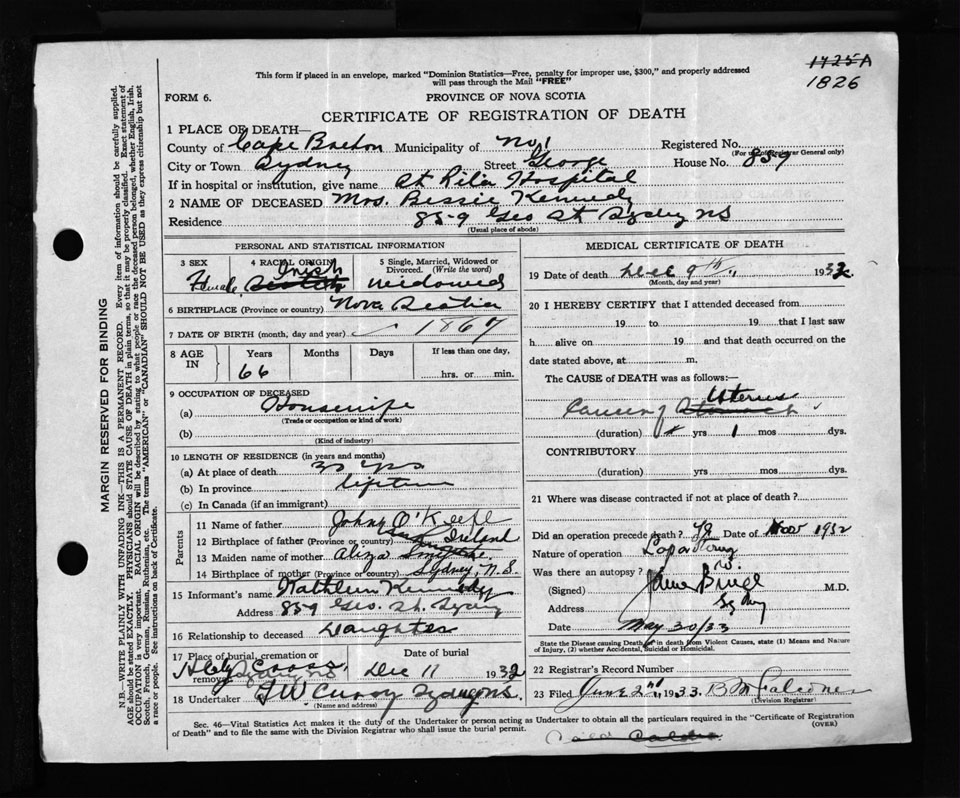 1425A
1826
This form if placed in an envelope, marked "Dominion Statistics—Free, penalty for improper use, $300," and properly addressed
will pass through the Mail "FREE"
FORM 6.
PROVINCE OF NOVA SCOTIA
CERTIFICATE OF REGISTRATION OF DEATH
1 PLACE OF DEATH—
County of Cape Breton Municipality of No 1 Registered No.
(For use of Registrar General only)
City or Town Sydney Street George House No. 859
If in hospital or institution, give name St Rita Hospital
2 NAME OF DECEASED Mrs. Bessie Kennedy
Residence 859 Geo St Sydney NS
(Usual place of abode)
PERSONAL AND STATISTICAL INFORMATION
3 SEX 4 RACIAL ORIGIN 5 Single, Married, Widowed or
Divorced. (Write the word)
Female Irish Scotch widowed
6 BIRTHPLACE (Province or country) Nova Scotia
7 DATE OF BIRTH (month, day and year) 1867
8 AGE IN Years Months Days If less than one day,
66 hrs. or min.
9 OCCUPATION OF DECEASED
(a) Housewife
(Trade or occupation or kind of work)
(b)
(Kind of industry)
10 LENGTH OF RESIDENCE (in years and months)
(a) At place of death 30 yrs
(b) In province lifetime
(c) In Canada (if an immigrant)
Parents
11 Name of father John O'Keefe
12 Birthplace of father (Province or country) Ireland
13 Maiden name of mother Aliza
14 Birthplace of mother (Province or country) Sydney, N.S.
15 Informant's name Kathleen Kennedy
Address 859 Geo. St. Sydney
16 Relationship to deceased Daughter
17 Place of burial, cremation or removal Date of burial
Holy Cross Sydney Dec 11 1932
18 Undertaker T W Curry Sydney NS.
(Name and address)
MEDICAL CERTIFICATE OF DEATH
19 Date of death Dec 9th 1932
(Month, day and year)
20 I HEREBY CERTIFY that I attended deceased from
19 to 19 that I last saw
h alive on 19 and that death occurred on the
date stated above, at m.
The CAUSE of DEATH was as follows:—
Uterus
Cancer of Stomach
(duration) yrs 1 mos dys.
CONTRIBUTORY
(duration) yrs mos dys.
21 Where was disease contracted if not at place of death?
Did an operation precede death? Yes Date of Nov 1932
Nature of operation
Was there an autopsy?
(Signed) M.D.
Address Sydney
Date May 30/33
State the Disease causing Death, or in death from Violent Causes, state (1) Means and Nature
of Injury, (2) whether Accidental, Suicidal or Homicidal.
22 Registrar's Record Number
23 Filed June 2nd 1933
(Division Registrar)
Sec. 46—Vital Statistics Act makes it the duty of the Undertaker or person acting as Undertaker to obtain all the particulars required in the "Certificate of Registration
of Death" and to file the same with the Division Registrar who shall issue the burial permit.
(OVER)
MARGIN RESERVED FOR BINDING
N.B.—WRITE PLAINLY WITH UNFADING INK—THIS IS A PERMANENT RECORD. Every item of information should be carefully supplied.
AGE should be stated EXACTLY. PHYSICIANS should STATE CAUSE OF DEATH in plain terms, so that it may be properly classified. Exact statement of
OCCUPATION is very important. RACIAL ORIGIN will be described by stating to what people or race the deceased person belonged, whether English, Irish,
Scotch, French, German, Russian, Ruthenian, etc. The terms "AMERICAN" or "CANADIAN" SHOULD NOT BE USED as they express citizenship but not
a race or people. See instructions on back of Certificate.